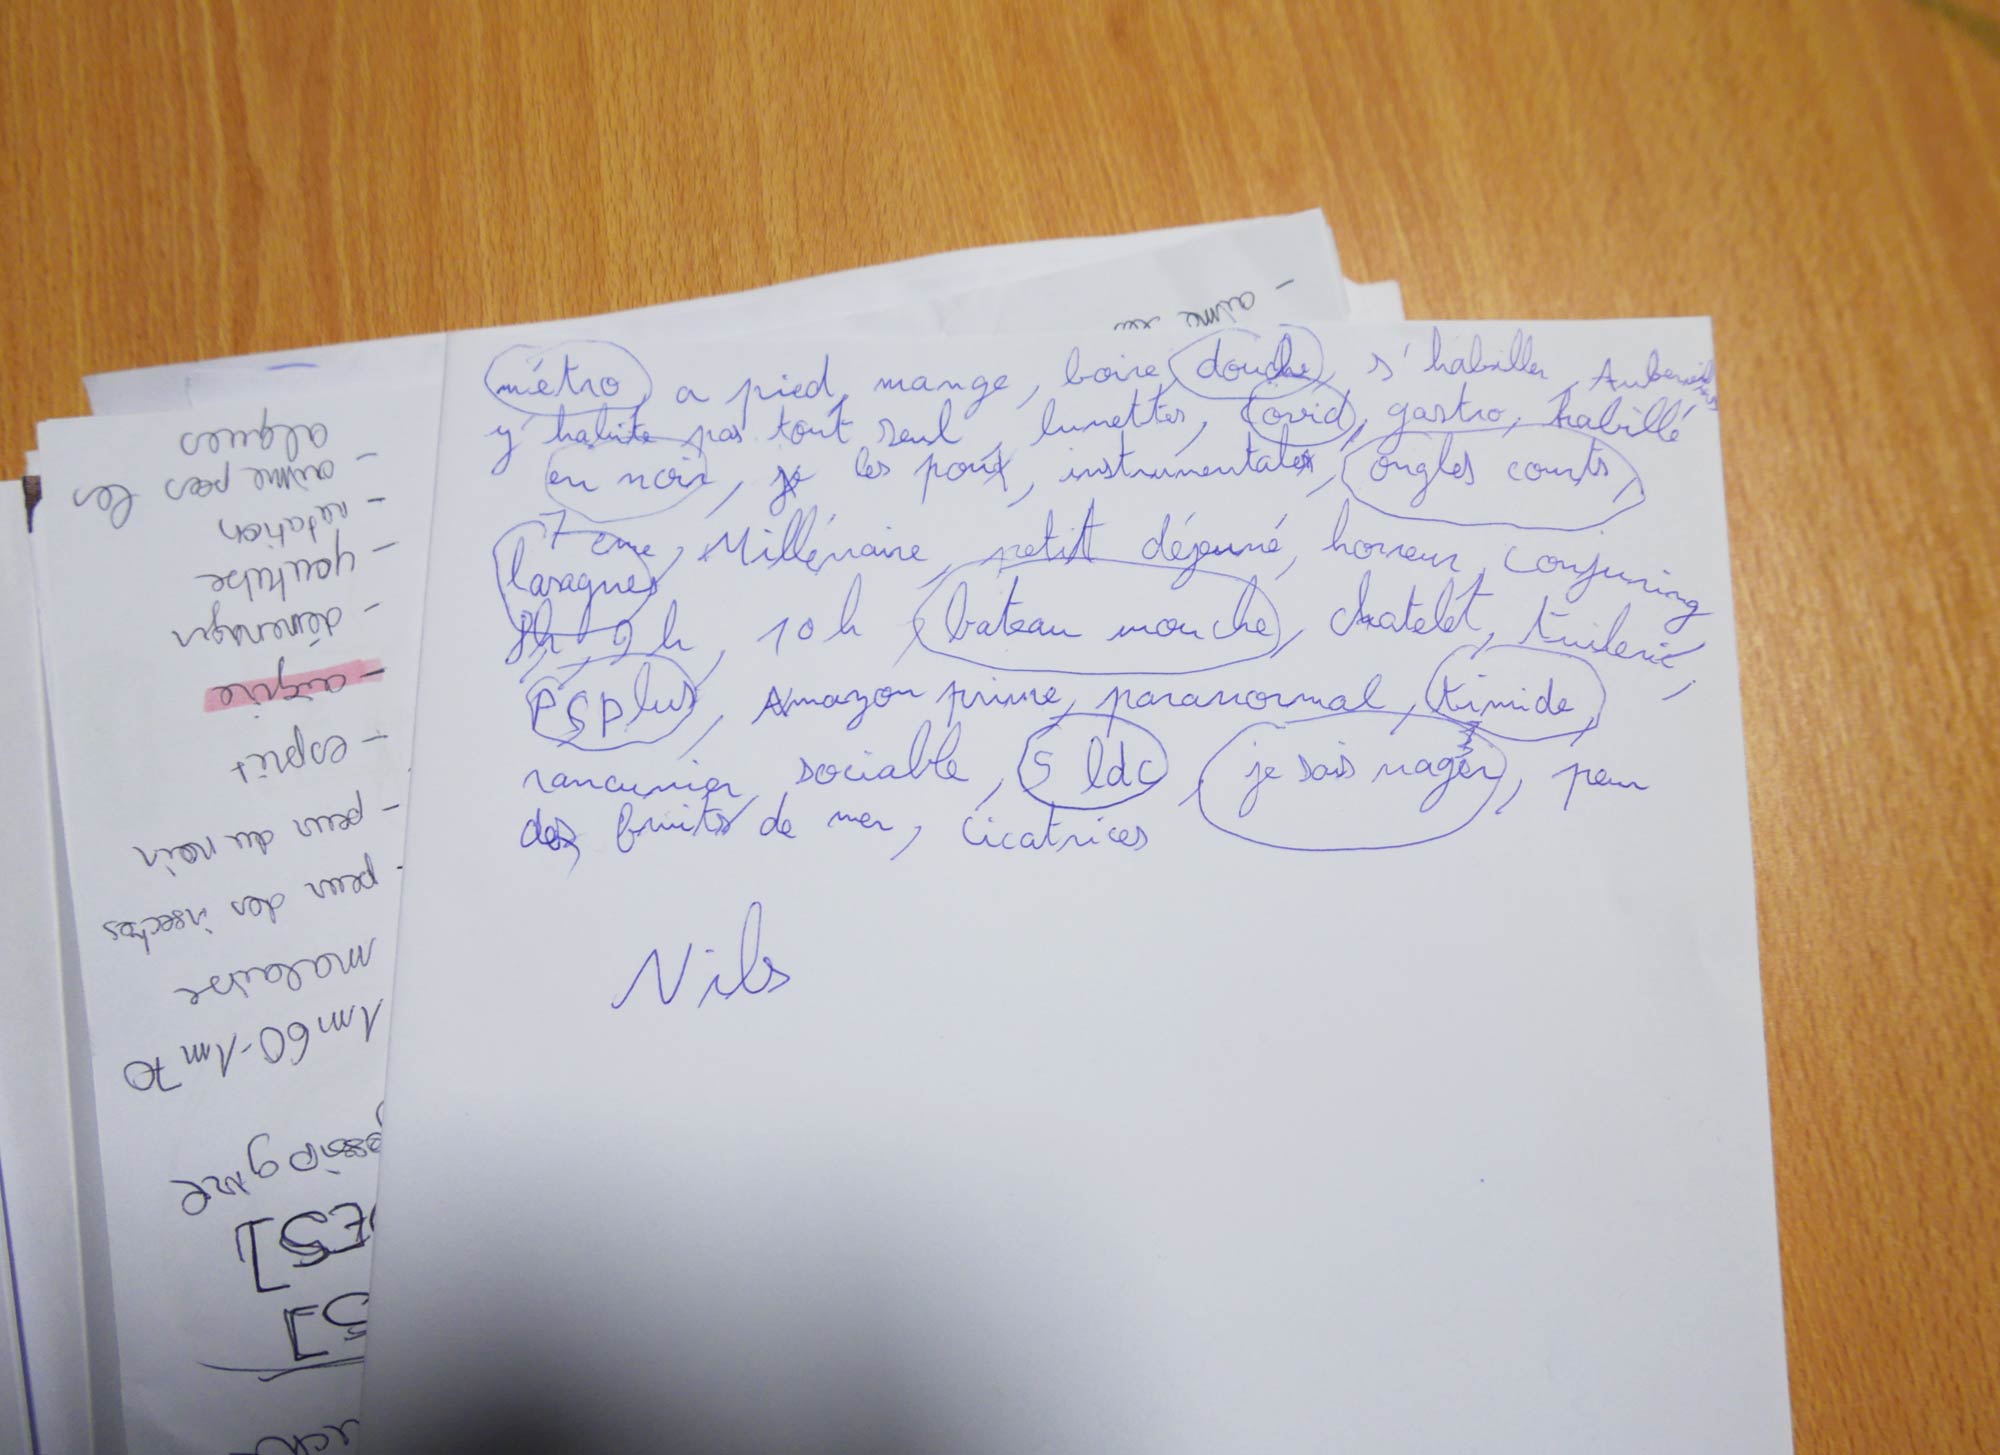 - aime
métro, a pied, mange, boire, douche, s'habiller,
y habite pas tout seul, lunettes, covid, gastro, habillé
en noir, les poux, instrumentales, ongles courts,
7 eme, Millénaire, petit déjeuné, horreur, conjuring
lasagnes
8h, 9h, 10h, bateau mouche, chatelet, tuilerie,
PS plus, Amazon prime, paranormal, timide,
rancunier, sociable, 5 ldc, je sais nager, peur
des fruits de mer, cicatrices
Nils
1m60-1m70
malaise
- peur des insectes
- peur du noir
- esprit
- déménager
- youtube
- natation
- aime pas les
algues